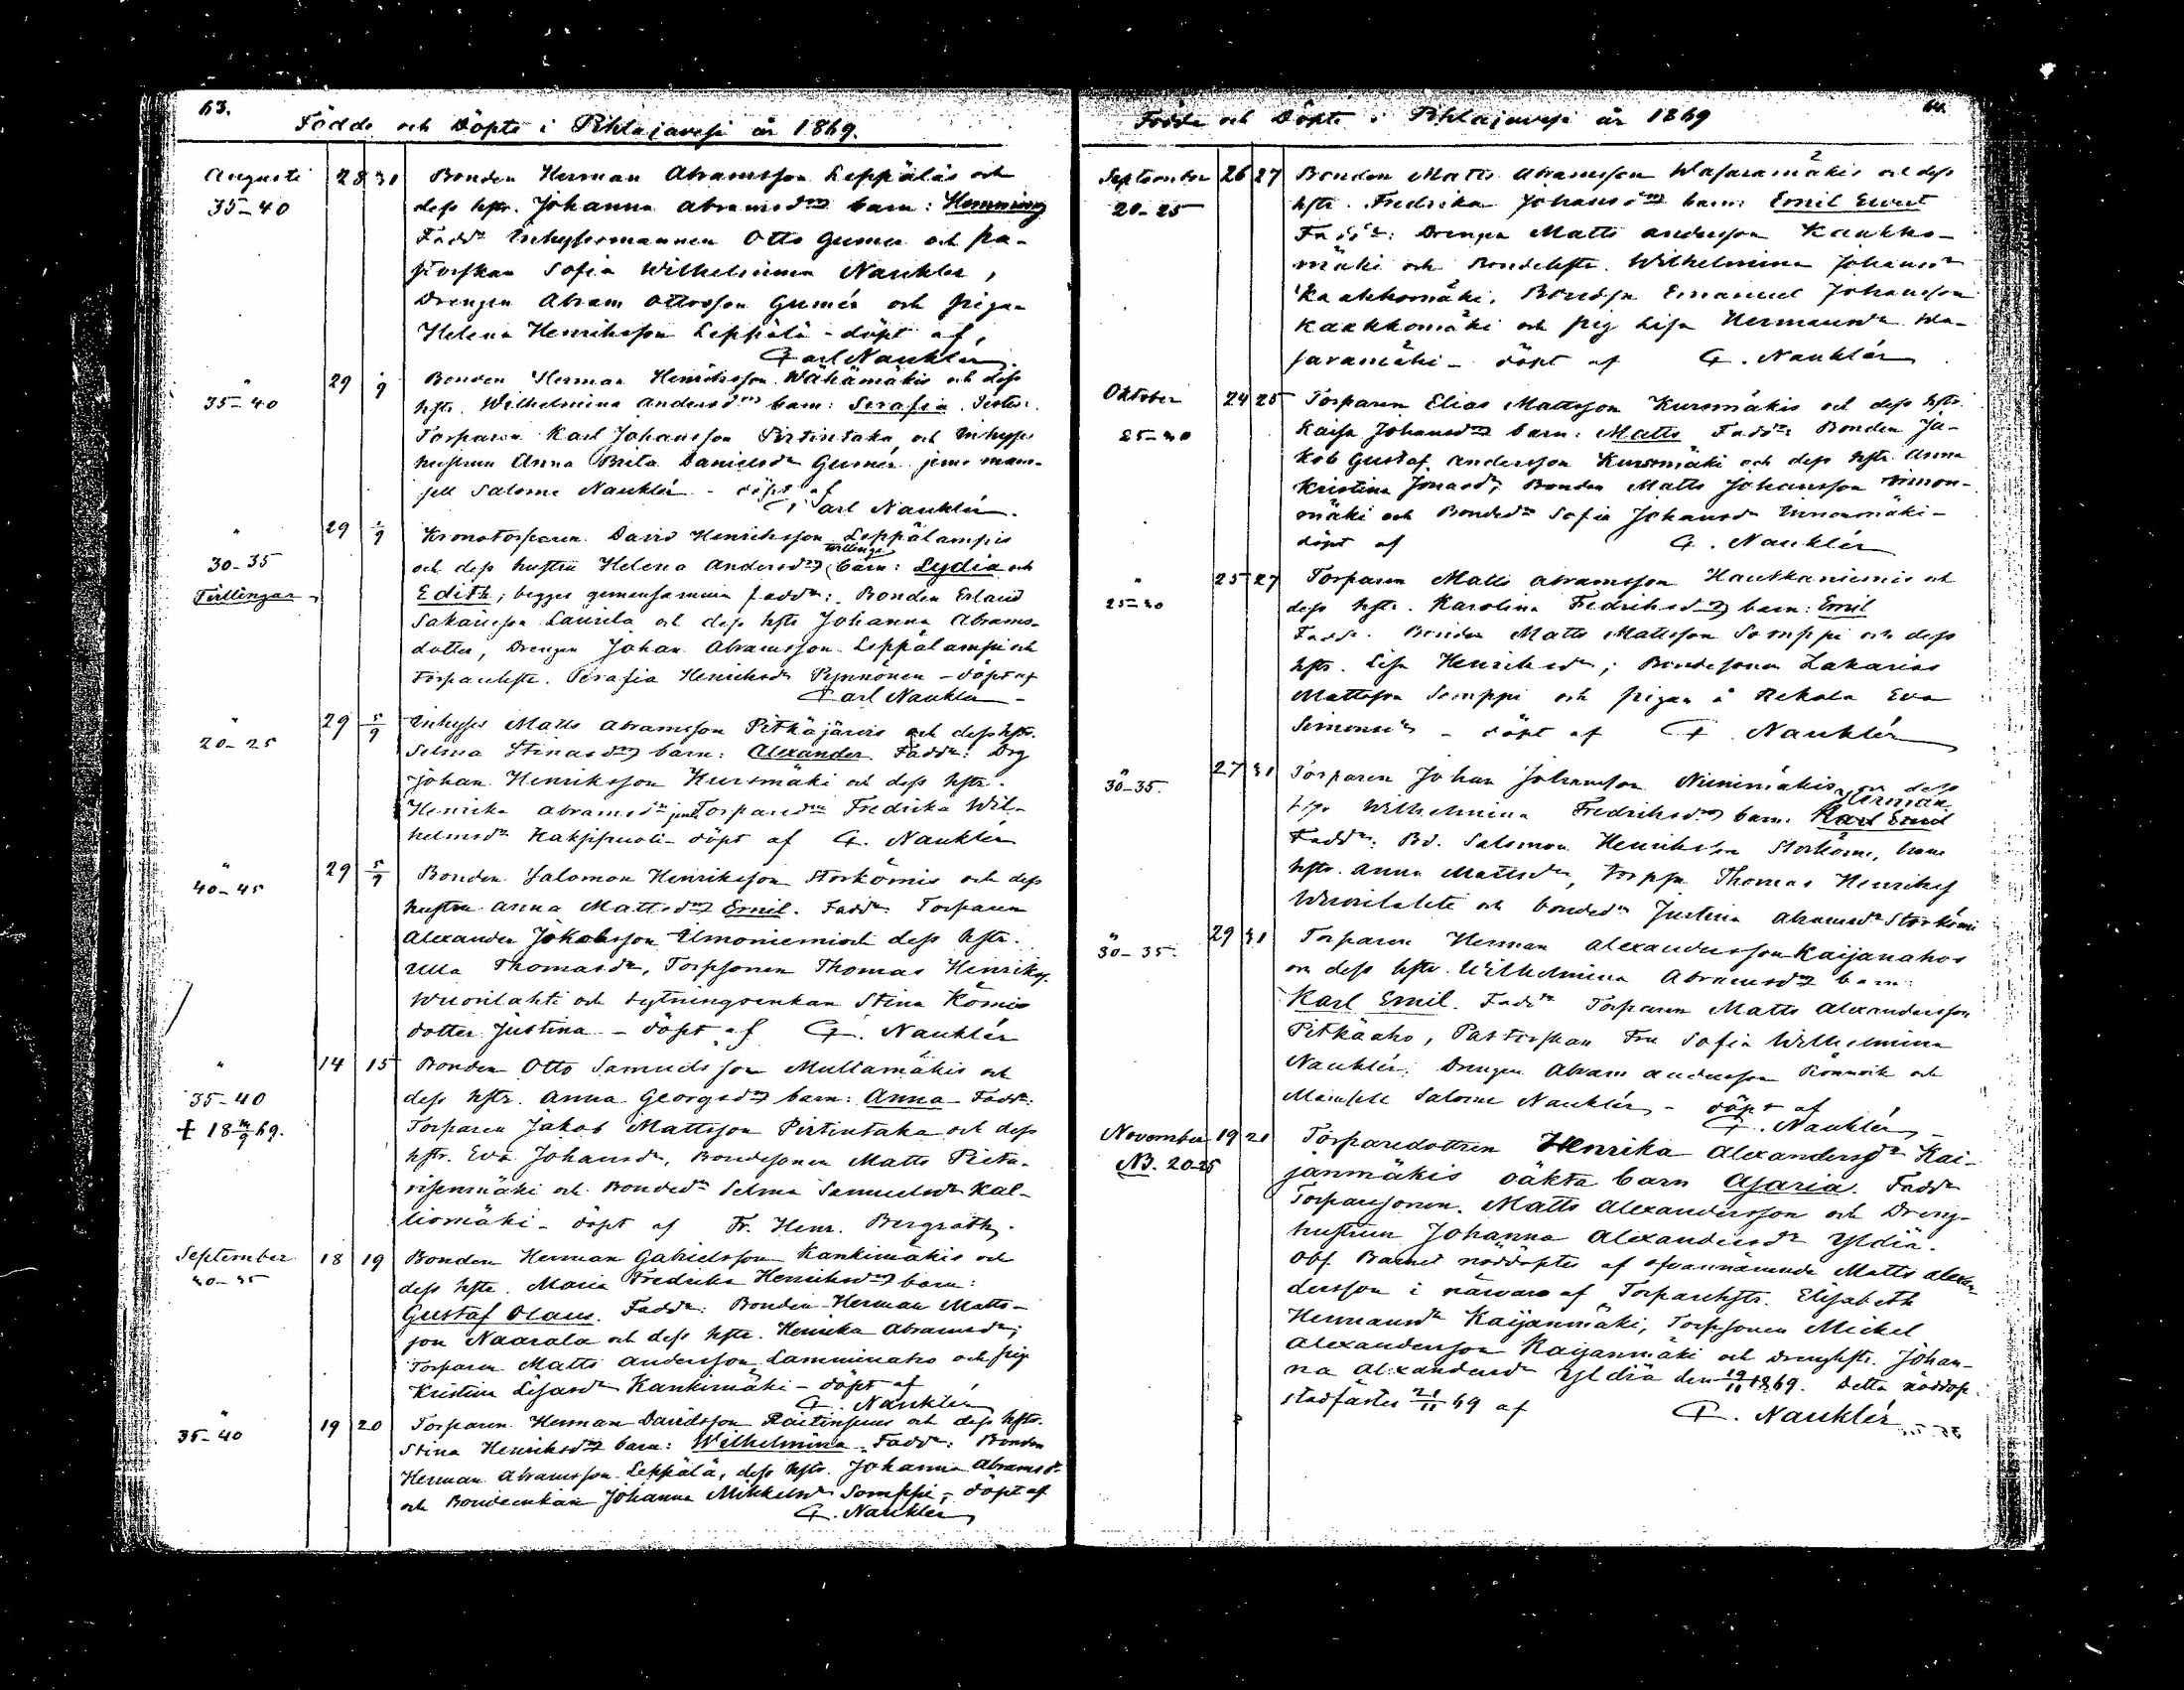 63.
Födde och Döpte i Pihlajavesi år 1869.
Augusti 28 31 Bonden Herman Abramsson Leppäläs och
35-40 dess hstr. Johanna Abramsdrs barn: Hemming
Faddr Inhysesmannen Otto Gumer och pa-
storskan Sofia Wilhelmina Nauklér,
Drengen Abram Ottosson Gumér och pigan
Helena Henriksson Leppälä - döpt af,
Carl Nauklér
" 29 1/9 Bonden Herman Henriksson Wähämäkis och dess
35-40 hstr. Wilhelmina Andersdrs barn: Serafia. Testes:
Torparen Karl Johansson Pirtintaka och Inhyses
hustrun Anna Brita Danielsdr Gumér jemte mam-
sell Salome Nauklér - döpt af
Carl Nauklér.
" 29 1/9 Kronotorparen David Henriksson Leppälampis
tvillinge
30-35 och dess hustru Helena Andersdrs barn: Lydia och
Tvillingar Edith; begges gemensamma faddr: Bonden Erland
Sakarisson Laurila och dess hstr Johanna Abrams-
dotter, Drengen Johan Abramsson Leppälampi och
Torparehstr. Serafia Henriksdr Pynnönen - döpt af
Carl Nauklér -
" 29 5/9 Inhyses Matts Abramsson Pitkäjärvis och dess hstr.
20-25 Selma Stinasdrs barn: Alexander Faddr: Drg
Johan Henriksson Kursmäki och dess hstr.
Henrika Abramsdr jemte Torparedr Fredrika Wil-
helmsdr - döpt af C. Nauklér
" 29 5/9 Bonden Salomon Henriksson Storkömis och dess
40-45 hustru Anna Mattsdrs Emil. Faddr: Torparen
Alexander Jakobsson Ulmoniemi och dess hstr.
Ulla Thomasdr, Torpsonen Thomas Henriks.
Wuorilahti och sytningsenkan Stina Kömis
dotter Justina - döpt af C. Nauklér
" 14 15 Bonden Otto Samuelsson Mullamäkis och
35-40 dess hstr. Anna Georgsdrs barn: Anna Faddr:
† 18 14/9 69. Torparen Jakob Mattsson Pirtintaka och dess
hstr. Eva Johansdr, Bondesonen Matts Pieta-
risenmäki och Bondedr Selma Samuelsdr Kal-
liomäki - döpt af Fr. Henr. Bergroth.
September 18 19 Bonden Herman Gabrielsson Kankimäkis och
40-45 dess hstr. Maria Fredrika Henriksdrs barn:
Gustaf Olaus. Faddr: Bonden Herman Matts-
son Naarala och dess hstr. Henrika Abramsdr;
Torparen Matts Andersson Lamminaho och pig
Kristina Lisasdr Kankimäki - döpt af
C. Nauklér
" 19 20 Torparen Herman Davidsson och dess hstr.
35-40 Stina Henriksdrs barn: Wilhelmina Faddr: Bonden
Herman Abramsson Leppälä, dess hstr. Johanna Abramsdr
och Bondeenkan Johanna Mikkelsdr Somppi, - döpt af
C. Nauklér
64.
Födde och Döpte i Pihlajavesi år 1869
September 26 27 Bonden Matts Abramsson Wasaramäkis och dess
20-25 hstr. Fredrika Johansdrs barn: Emil Evert
Faddr: Drengen Matts Andersson Kaakko-
mäki och Bondehstr. Wilhelmina Johansdr
Kaakkomäki, Bondsn Emanuel Johansson
Kaakkomäki och pig Lisa Hermansdr Wa-
saramäki - döpt af C. Nauklér
Oktober 24 25 Torparen Elias Mattsson Kursmäkis och dess hstr.
25-30 Kaisa Johansdrs barn: Matts Faddr: Bonden Ja-
kob Gustaf Andersson Kursmäki och dess hstr Anna
Kristina Jonasdr; Bonden Matts Johansson Uunon-
mäki och Bondedr Sofia Johansdr Uunonmäki -
döpt af C. Nauklér
" 25 27 Torparen Matts Abramsson Hautkaniemis och
25-30 dess hstr. Karolina Fredriksdrs barn: Emil
Faddr. Bonden Matts Mattsson Somppi och dess
hstr. Lisa Henriksdr; Bondesonen Zakarias
Mattsson Somppi och pigan å Rekola Eva
Simonsdr - döpt af C. Nauklér
" 27 31 Torparen Johan Johansson Niinimäkis och dess
30-35. hstr Wilhelmina Fredriksdrs barn: Herman
Karl Emil
Faddr: Bd. Salomon Henriksson Storkömi, hans
hstr. Anna Mattsdr, torpsn Thomas Henriks
Wuorilahti och bondedr Justina Abramsdr Storkömi
" 29 31 Torparen Herman Alexandersson Kaijanahos
30-35. och dess hstr. Wilhelmina Abramsdrs barn:
Karl Emil. Faddr Torparen Matts Alexandersson
Pitkäaho, Pastorskan Fru Sofia Wilhelmina
Nauklér, Drengen Abram Andersson och
Mamsell Salome Nauklér - döpt af
C. Nauklér -
November 19 21 Torparedottren Henrika Alexandersdr Kai-
NB. 20-25 janmäkis oäkta barn Asaria. Faddr
Torparesonen Matts Alexandersson och Dreng-
hustrun Johanna Alexandersdr Yldiä.
Obs. Barnet nöddöptes af ofvannämnde Matts Alexan-
dersson i närvaro af Torparehstr. Elisabeth
Hermansdr Kaijanmäki, Torpsonen Mickel
Alexandersson Kaijanmäki och drenghstr. Johan-
na Alexandersdr Yldiä den 19/11 1869. Detta nöddop
stadfästes 21/11 69 af C. Nauklér